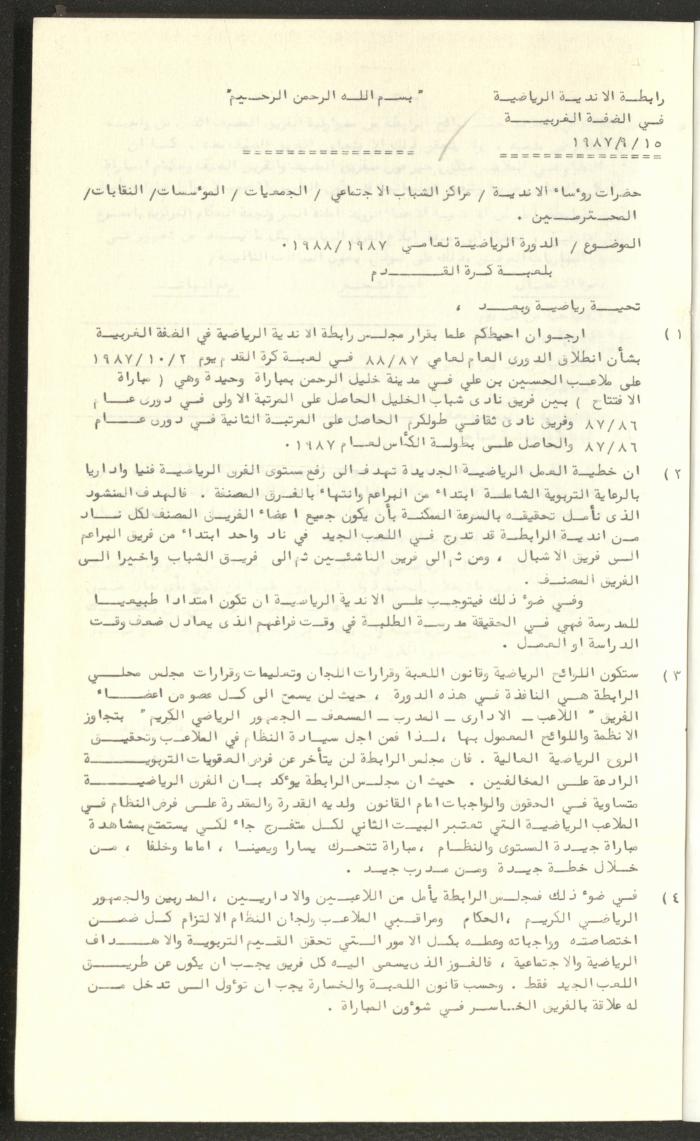 رابطة الاندية الرياضية
" بسم الله الرحمن الرحيم"
في الضفة الغربية
١٩٨٧/٩/١٥
حضرات روءساء الاندية / مراكز الشباب الاجتماعي / الجمعيات / الموءسسات/ النقابات/
المحترمين .
الموضوع / الدورة الرياضية لعامي ١٩٨٨/١٩٨٧.
بلعبة كرة القدم
تحية رياضية وبعد ،
١ ) ارجو ان احيطكم علما بقرار مجلس رابطة الاندية الرياضية في الضفة الغربية
بشأن انطلاق الدورى العام لعامي ٨٨/٨٧ في لعبة كرة القدم يوم ١٩٨٧/١٠/٢
على ملاعب الحسين بن علي في مدينة خليل الرحمن بمباراة وحيدة وهي ( مباراة
الافتتاح ) بين فريق نادى شباب الخليل الحاصل على المرتبة الاولى في دورى عام
٨٧/٨٦ وفريق نادى ثقافي طولكرم الحاصل على المرتبة الثانية في دورى عام
٨٧/٨٦ والحاصل على بطولة الكأس لعام ١٩٨٧.
٢ ) ان خطية العمل الرياضية الجديدة تهدف الى رفع مستوى الفرق الرياضية فنيا واداريا
بالرعاية التربوية الشاملة ابتداء من البراعم وانتهاء بالفرق المصنفة . فالهدف المنشود
الذى نأمل تحقيقه بالسرعة الممكنة بأن يكون جميع اعضاء الفريق المصنف لكل ناد
من اندية الرابطة قد تدرج في اللعب الجيد في ناد واحد ابتداء من فريق البراعم
الى فريق الاشبال ، ومن ثم الى فريق الناشئين ثم الى فريق الشباب واخيرا الى
الفريق المصنف .
وفي ضوء ذلك فيتوجب على الاندية الرياضية ان تكون امتدادا طبيعيا
للمدرسة فهي في الحقيقة مدرسة الطلبة في وقت فراغهم الذى يعادل ضعف وقت
الدراسة او العمل .
٣ ) ستكون اللوائح الرياضية وقانون اللعبة وقرارات اللجان وتعليمات وقرارات مجلس محلي
الرابطة هي النافذة في هذه الدورة ، حيث لن يسمح الى كل عضو من اعضاء
الفريق " اللاعب _ الادارى _ المدرب _ المسعف _ الجمهور الرياضي الكريم " بتجاوز
الانظمة واللوائح المعمول بها ،لذا فمن اجل سيادة النظام في الملاعب وتحقيق
الروح الرياضية العالية . فان مجلس الرابطة لن يتأخر عن فرض العقوبات التربوية
الرادعة على المخالفين . حيث ان مجلس الرابطة يوءكد بان الفرق الرياضية
متساوية في الحقوق والواجبات امام القانون ولديه القدرة والمقدرة على فرض النظام في
الملاعب الرياضية التي تعتبر البيت الثاني لكل متفرج جاء لكي يستمتع بمشاهدة
مباراة جيدة المستوى والنظام ،مباراة تتحرك يسارا ويمينا ، اماما وخلفا ، من
خلال خطة جيدة ومن مدرب جيد .
٤ ) في ضوء ذلك فمجلس الرابطة يأمل من اللاعبين والاداريين ،المدربين والجمهور
الرياضي الكريم ،الحكام ومراقبي الملاعب ولجان النظام الالتزام كل ضمن
اختصاصته وواجباته وعمله بكل الامور التي تحقق القيم التربوية والاهداف
الرياضية والاجتماعية ، فالفوز الذى يسعى اليه كل فريق يجب ان يكون عن طريق
اللعب الجيد فقط . وحسب قانون اللعبة والخسارة يجب ان توءول الى تدخل من
له علاقة بالفريق الخاسر في شوءون المباراة .